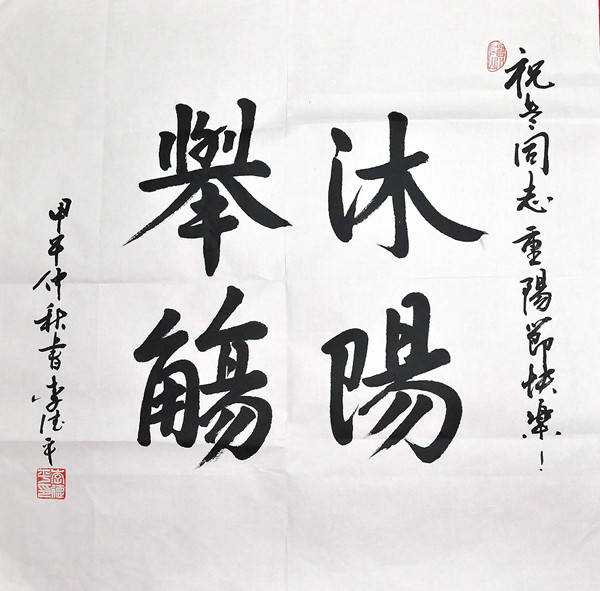 祝老同志重陽節快樂！
沐陽
舉觴
甲午仲秋書李德平